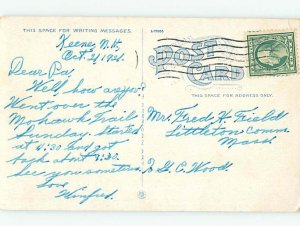 THIS SPACE FOR WRITING MESSAGES.
Keene, N.H.
Oct. 21, 1921.
Dear Pa,
Well, how are you?
Went over the
Mohawk Trail
Sunday. Started
at 4:30 and got
back about 7:30.
See you sometime.
Love
Winfred.
POST
CARD
THIS SPACE FOR ADDRESS ONLY.
Mr. Fred K. Field
Littleton Comm.
Mass.
% G. C. Wood